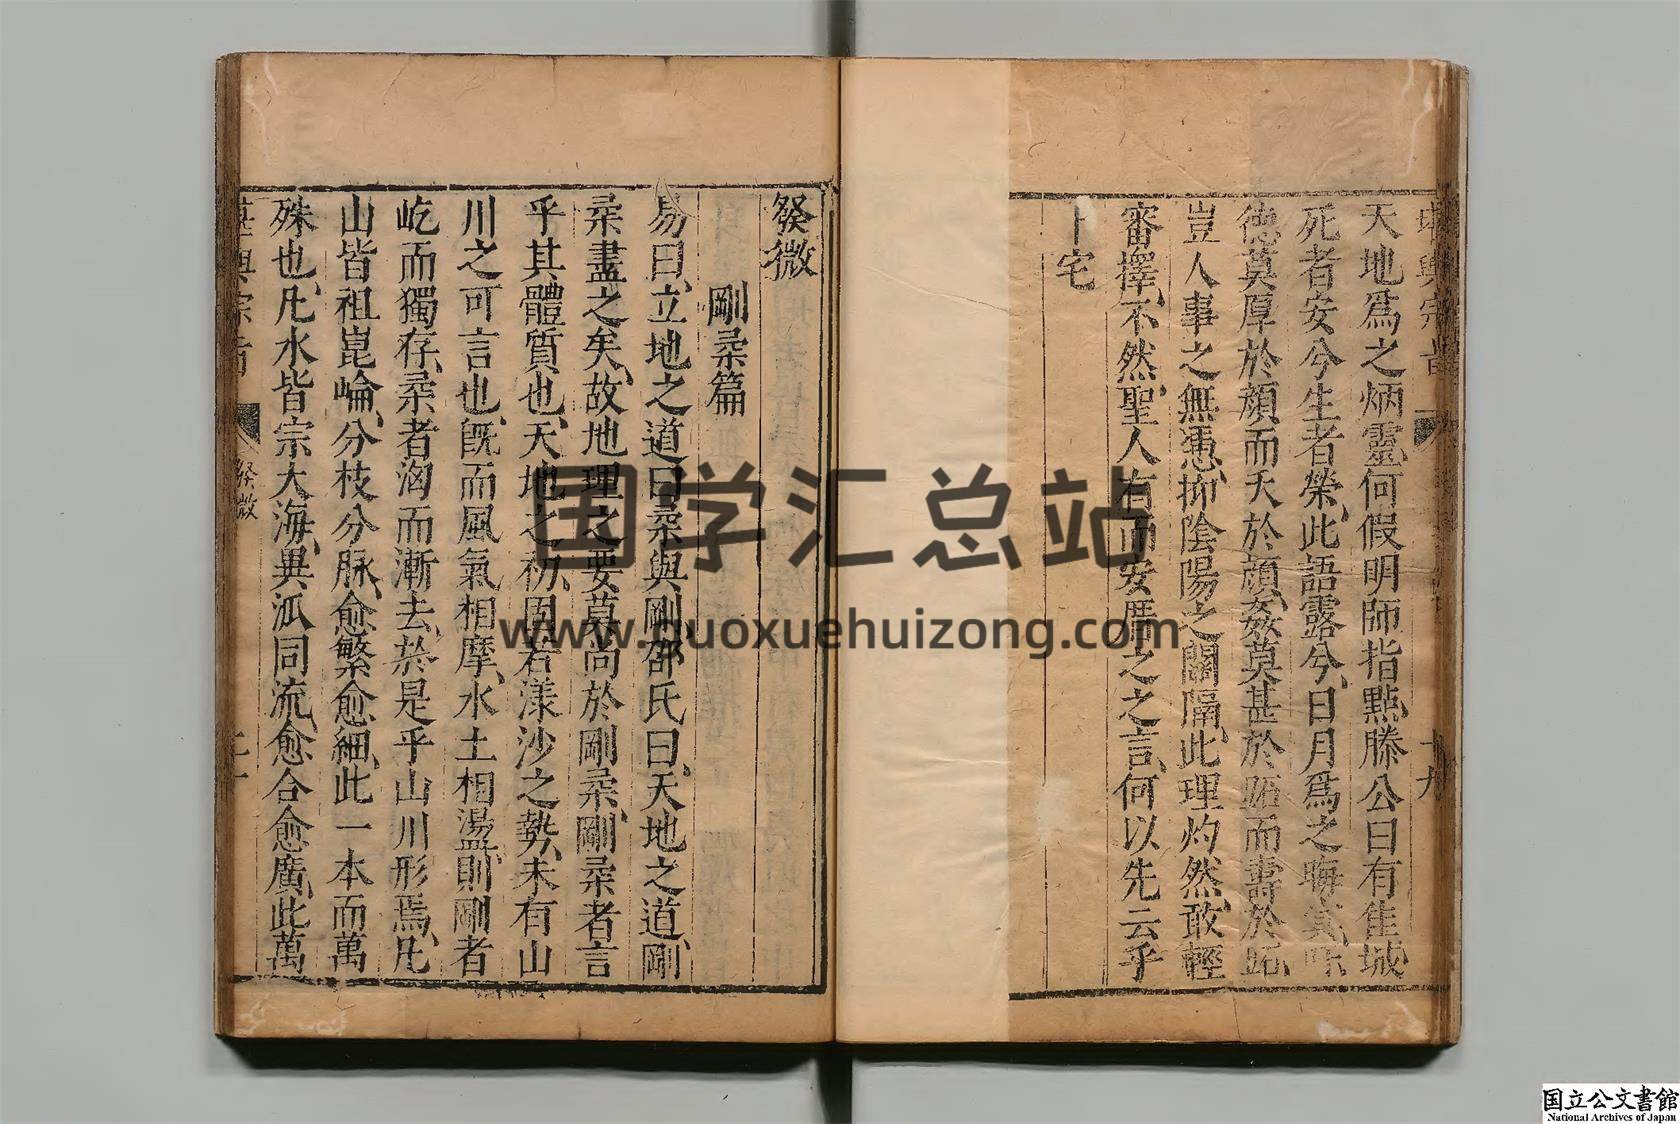 天地爲之炳靈何假明師指點滕公曰有隹城
死者安兮生者榮此語露兮日月爲之晦冥
德莫厚於顔而夭於顔姦莫甚於跖而壽於跖
豈人事之無憑抑陰陽之關隔此理灼然敢輕
審擇不然聖人有而安厝之之言何以先云乎
卜宅
發微
剛柔篇
易曰立地之道曰柔與剛邵氏曰天地之道剛
柔盡之矣故地理之要莫尚於剛柔剛柔者言
乎其體質也天地之初固若漾沙之勢未有山
川之可言也既而風氣相摩水土相盪則剛者
屹而獨存柔者淘而漸去於是乎山川形焉凡
山皆祖崑崘分枝分脉愈繁愈細此一本而萬
殊也凡水皆宗大海異派同流愈合愈廣此萬
堪輿宗旨 發微
国学汇总站
www.guoxuehuizong.com
国立公文書館
National Archives of Japan